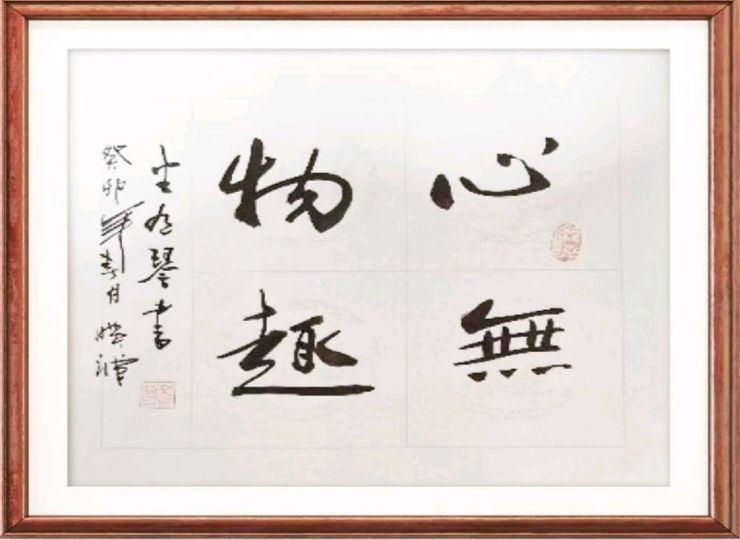 心無
物趣
坐有琴書
癸卯年春月